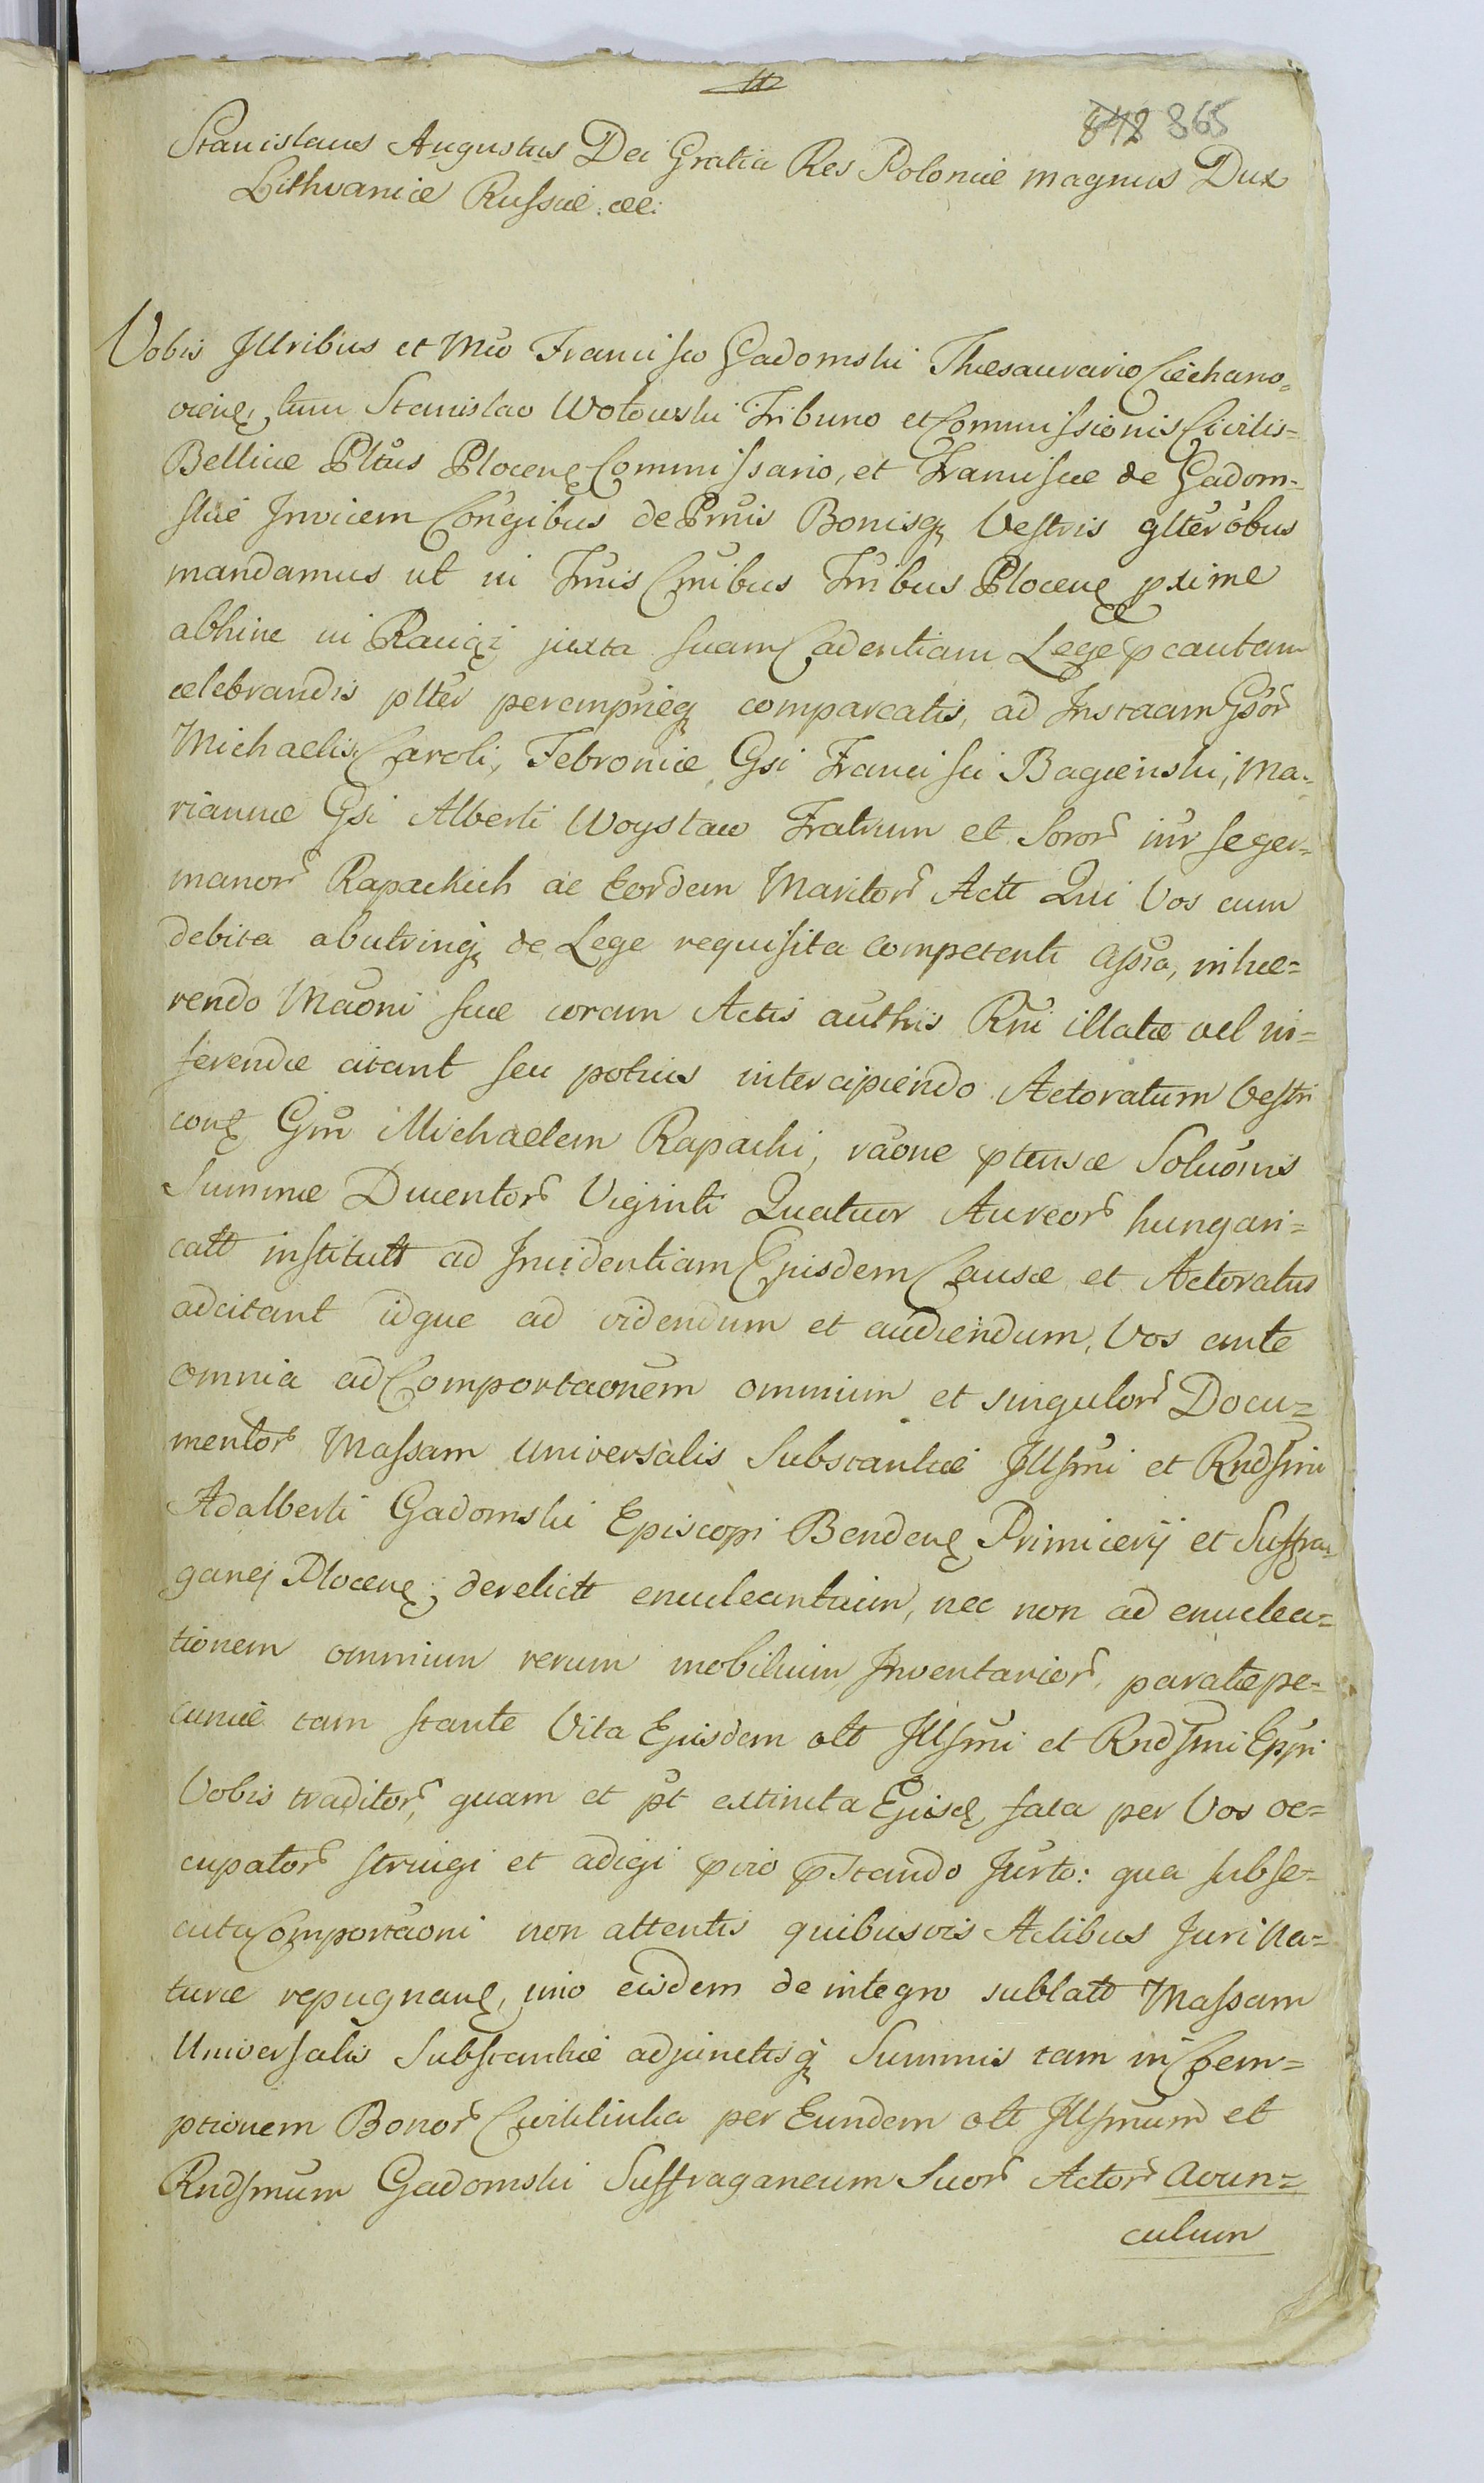 842 865
Stanislaus Augustus Dei Gratia Rex Poloniæ magnus Dux
Lithvaniæ Russiæ ææ:
Vobis Jllribus et Mco Francisco Gadomski Thesaurario Ciechano=
vien, tum Stanislao Wołowski Tribuno et Commissionis Civilis=
Bellicæ Pltus Plocen Commissario, et Franciscæ de Gadom=
skie Jnvicem Conjgibus de Prnis Bonisq Vestris glter obus
mandamus ut in Trnis Cnibus Trribus Plocen pxime
abhinc in Raciąż juxta suam Cadentiam Lege pcautam
celebrandis plter peremprieq compareatis, ad Jnstaam Gsor
Michaelis Caroli, Febroniæ Gsi Francisci Bagieński, Ma=
riannæ Gsi Alberti Woysław Fratrum et Soror inr se ger=
manor Rapackich ac Eordem Maritor Actt Qui Vos cum
debita abutrinq de Lege requisita competenti Assia, inhæ=
rendo Maoni suæ coram Actis authis Rni illatæ vel in=
ferendæ citant seu potius intercipiendo Actoratum Vestri
con Gm Michaelem Rapacki, raone ptensæ Soluonis
Summæ Ducentor Viginti Quatuor Aureor hungari=
catt institutt ad Jncidentiam Ejusdem Causæ et Actoratus
adcitant idque ad videndum et audiendum, Vos ante
omnia ad Comportaonem omnium et singulor Docu=
mentor Massam universalis Substantiæ Jllsmi et Rndsmi
Adalberti Gadomski Episcopi Benden Primicerij et Suffra=
ganej Plocen, derelictt enucleantium, nec non ad enuclea=
tionem omnium rerum mobilium Jnventarior, paratæ pe=
cuniæ tam stante Vita Ejusdem olt Jllsmi et Rndsmi Eppi
Vobis traditor, quam et pt extincta Ejusd fata per Vos oc=
cupator stringi et adigi pvio pstando Jurto: qua subse=
cuta Comportaoni non attentis quibusvis Actibus Juri Na=
turæ repugnan, imo eisdem de integro sublatt Massam
Universalis Substantiæ adjunctisq Summis tam in Coem=
ptionem Bonor Cwiklinka per Eundem olt Jllsmum et
Rndsmum Gadomski Suffraganeum Suor Actor avun=
culum